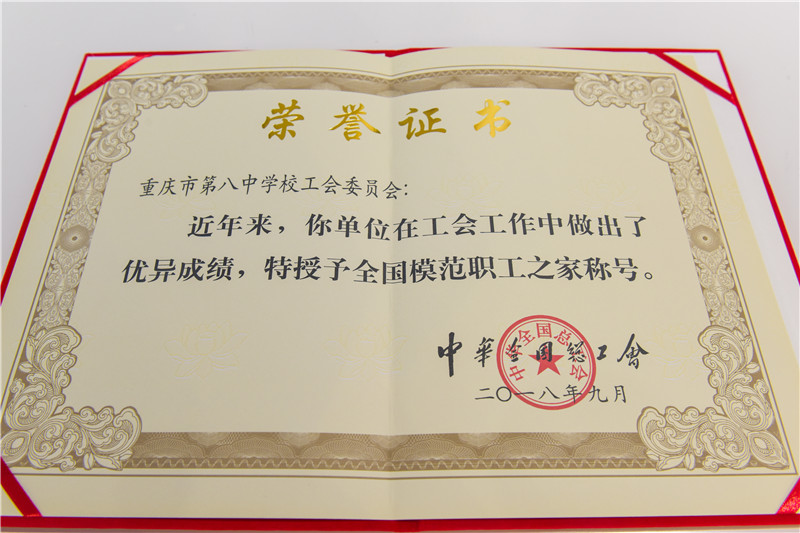 荣誉证书
重庆市第八中学校工会委员会：
近年来，你单位在工会工作中做出了
优异成绩，特授予全国模范职工之家称号。
中华全国总工会
中华全国总工会
二〇一八年九月